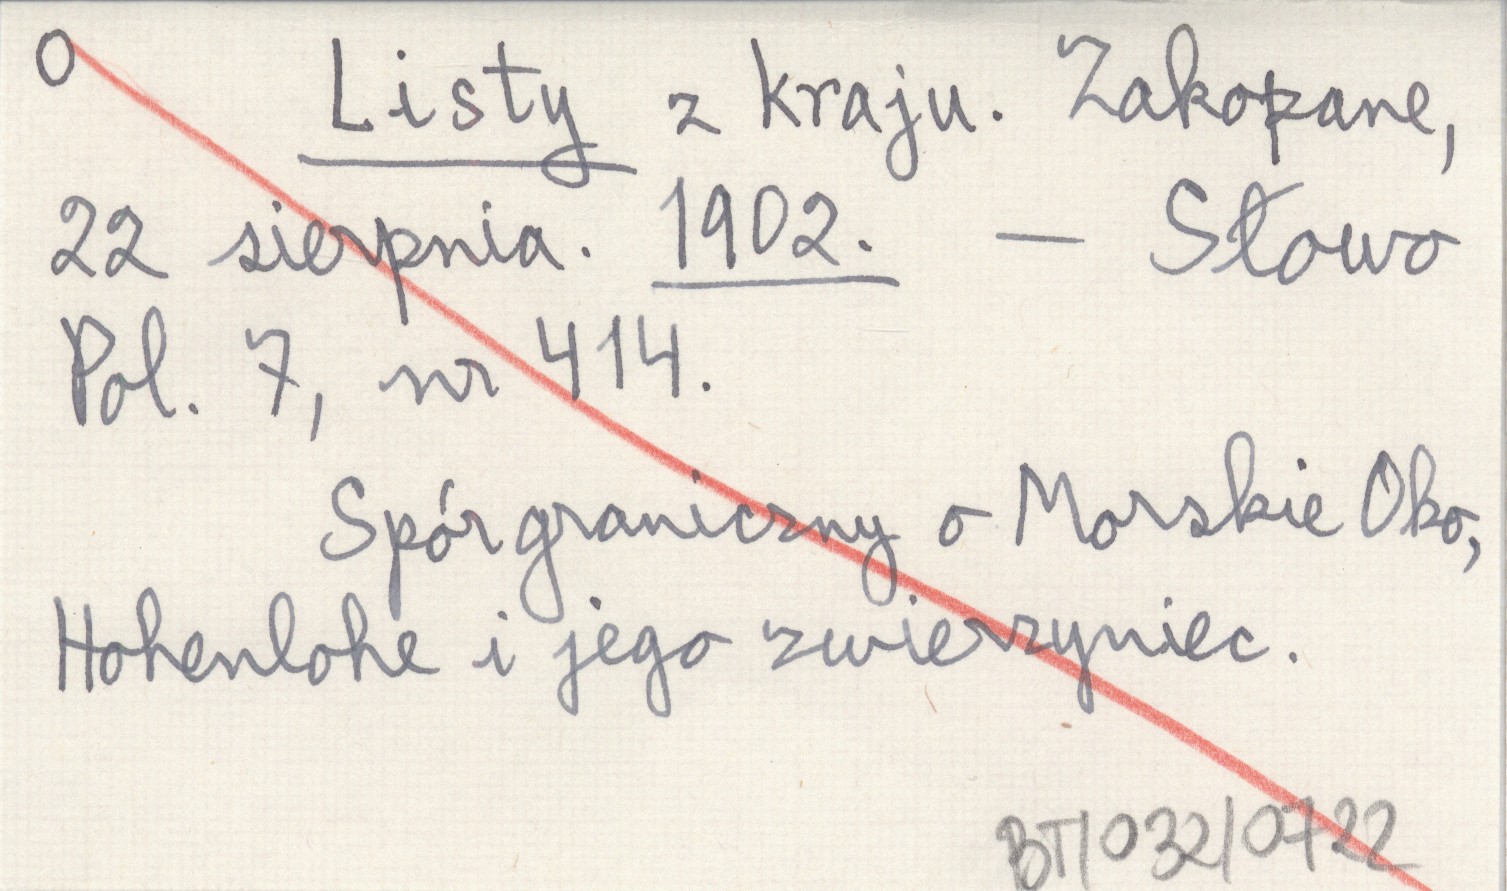 O
Listy z kraju. Zakopane,
22 sierpnia. 1902. — Słowo
Pol. 7, nr 414.
Spór graniczny o Morskie Oko,
Hohenlohe i jego zwierzyniec.
BT/032/0722